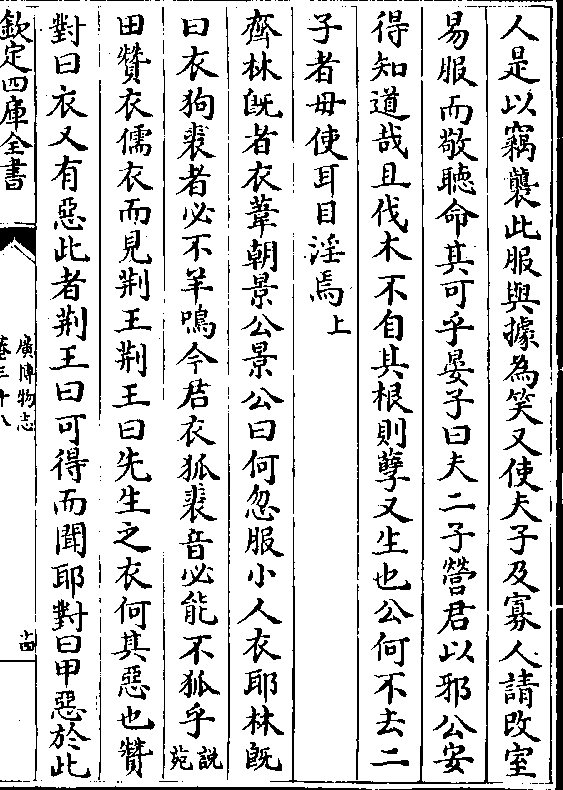 人是以竊襲此服與據為笑又使夫子及寡人請改室
易服而敬聽命其可乎晏子曰夫二子營君以邪公安
得知道哉且伐木不自其根則孽又生也公何不去二
子者毋使耳目淫焉上
齊林旣者衣葦朝景公景公曰何忽服小人衣耶林旣
曰衣狗裘者必不羊鳴今君衣狐裘音必能不狐乎說苑
田贊衣儒衣而見荆王荆王曰先生之衣何其惡也贊
對曰衣又有惡此者荆王曰可得而聞耶對曰甲惡於此
欽定四庫全書
廣博物志
卷三十八
十四